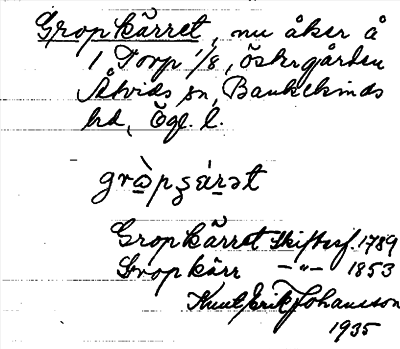 Gropkärret, nu åker å
1 Torp 1/8, Östergården
Åtvids sn, Bankekinds
hd, Ögl. l.
grò̱pʂár̠ət
Gropkärret Skiftesf. 1789
Gropkärr —"— 1853
Knut Erik Johansson
1935